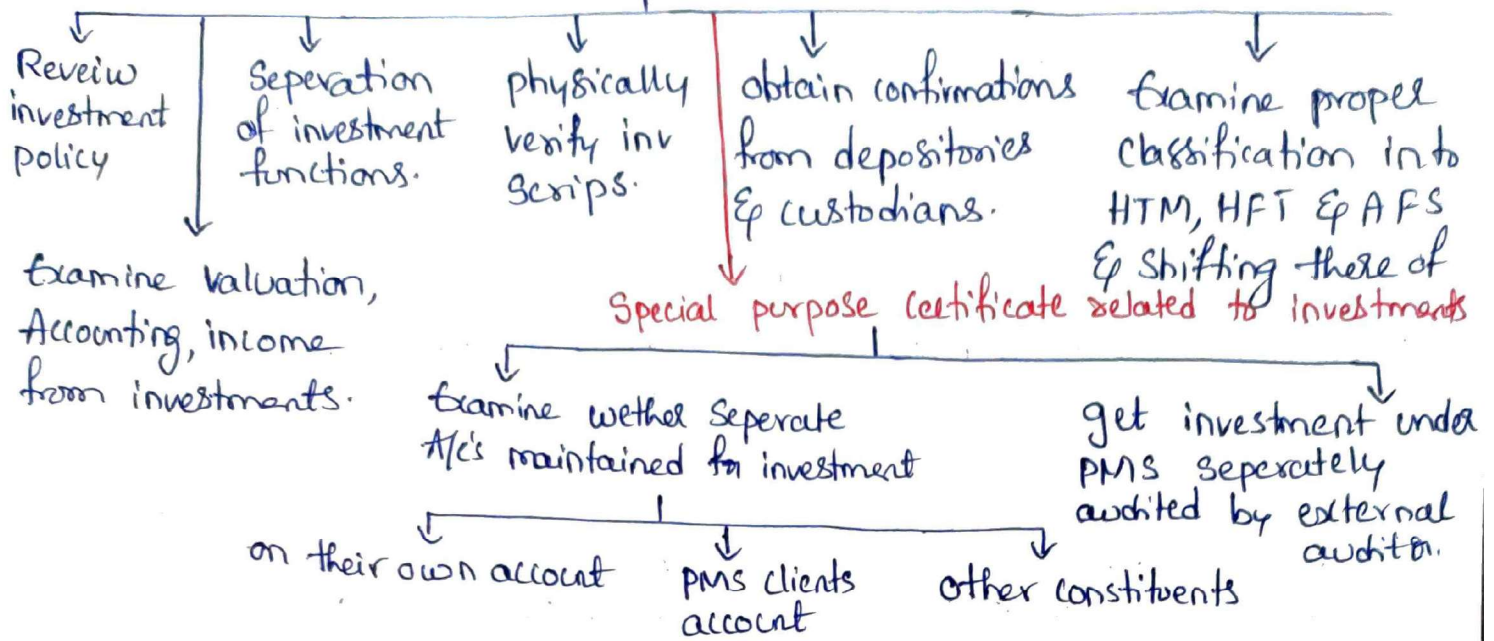 Reveiw
investment
policy
Seperation
of investment
functions.
physically
verify inv
Scrips.
obtain confirmations
from depositories
& custodians.
Examine proper
classification into
HTM, HFT & AFS
& Shifting there of
Examine valuation,
Accounting, income
from investments.
Special purpose certificate related to investments
Examine wether Seperate
A/c's maintained for investment
get investment under
PMS seperately
audited by external
auditor.
on their own account
PMS clients
account
other constituents